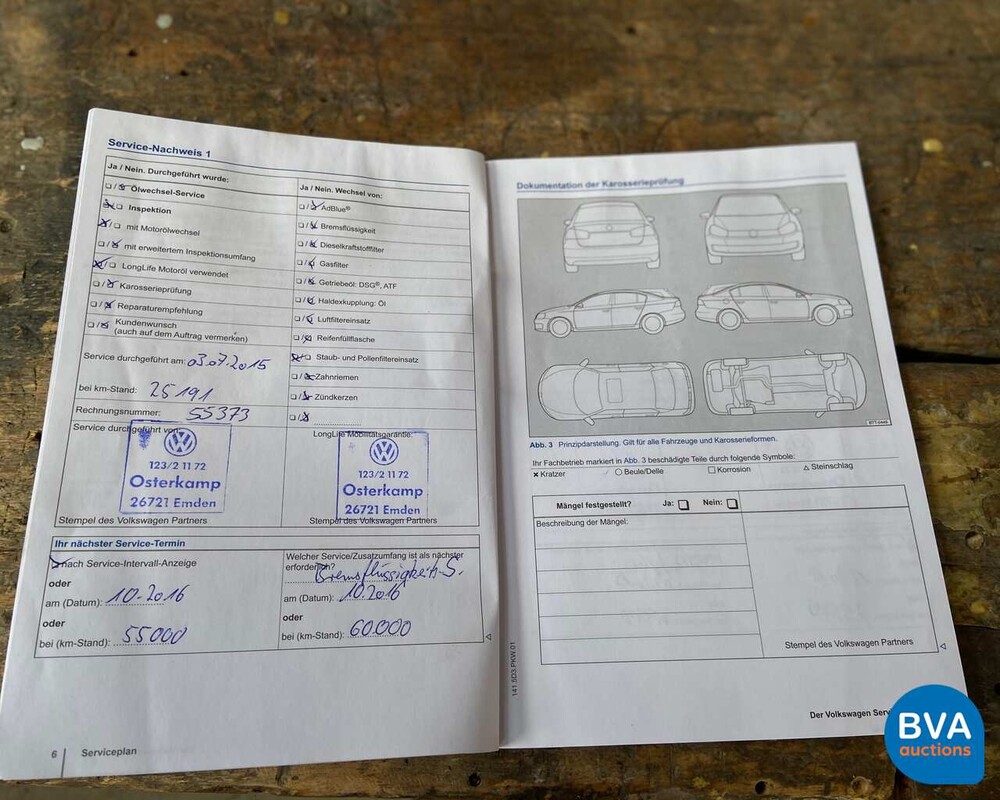 Service-Nachweis 1
Ja / Nein. Durchgeführt wurde:
Ölwechsel-Service
Inspektion
mit Motorölwechsel
mit erweitertem Inspektionsumfang
LongLife Motoröl verwendet
Karosserieprüfung
Reparaturempfehlung
Kundenwunsch
(auch auf dem Auftrag vermerken)
Service durchgeführt am: 03.07.2015
bei km-Stand: 25191
Rechnungsnummer: 55373
Service durchgeführt von:
123/2 11 72
Osterkamp
26721 Emden
Stempel des Volkswagen Partners
Ja / Nein. Wechsel von:
AdBlue®
Bremsflüssigkeit
Dieselkraftstofffilter
Gasfilter
Getriebeöl: DSG®, ATF
Haldexkupplung: Öl
Luftfiltereinsatz
Reifenfüllflasche
Staub- und Pollenfiltereinsatz
Zahnriemen
Zündkerzen
LongLife Mobilitätsgarantie:
123/2 11 72
Osterkamp
26721 Emden
Stempel des Volkswagen Partners
Ihr nächster Service-Termin
nach Service-Intervall-Anzeige
oder
am (Datum): 10.2016
oder
bei (km-Stand): 55000
Welcher Service/Zusatzumfang ist als nächster
erforderlich?
Bremsflüssigkeit-S.
am (Datum): 10.2016
oder
bei (km-Stand): 60.000
6 Serviceplan
Dokumentation der Karosserieprüfung
Abb. 3 Prinzipdarstellung. Gilt für alle Fahrzeuge und Karosserieformen.
Ihr Fachbetrieb markiert in Abb. 3 beschädigte Teile durch folgende Symbole:
Kratzer Beule/Delle Korrosion Steinschlag
Mängel festgestellt? Ja: Nein:
Beschreibung der Mängel:
Stempel des Volkswagen Partners
141.5D3.PKW.01
Der Volkswagen
BVA
auctions